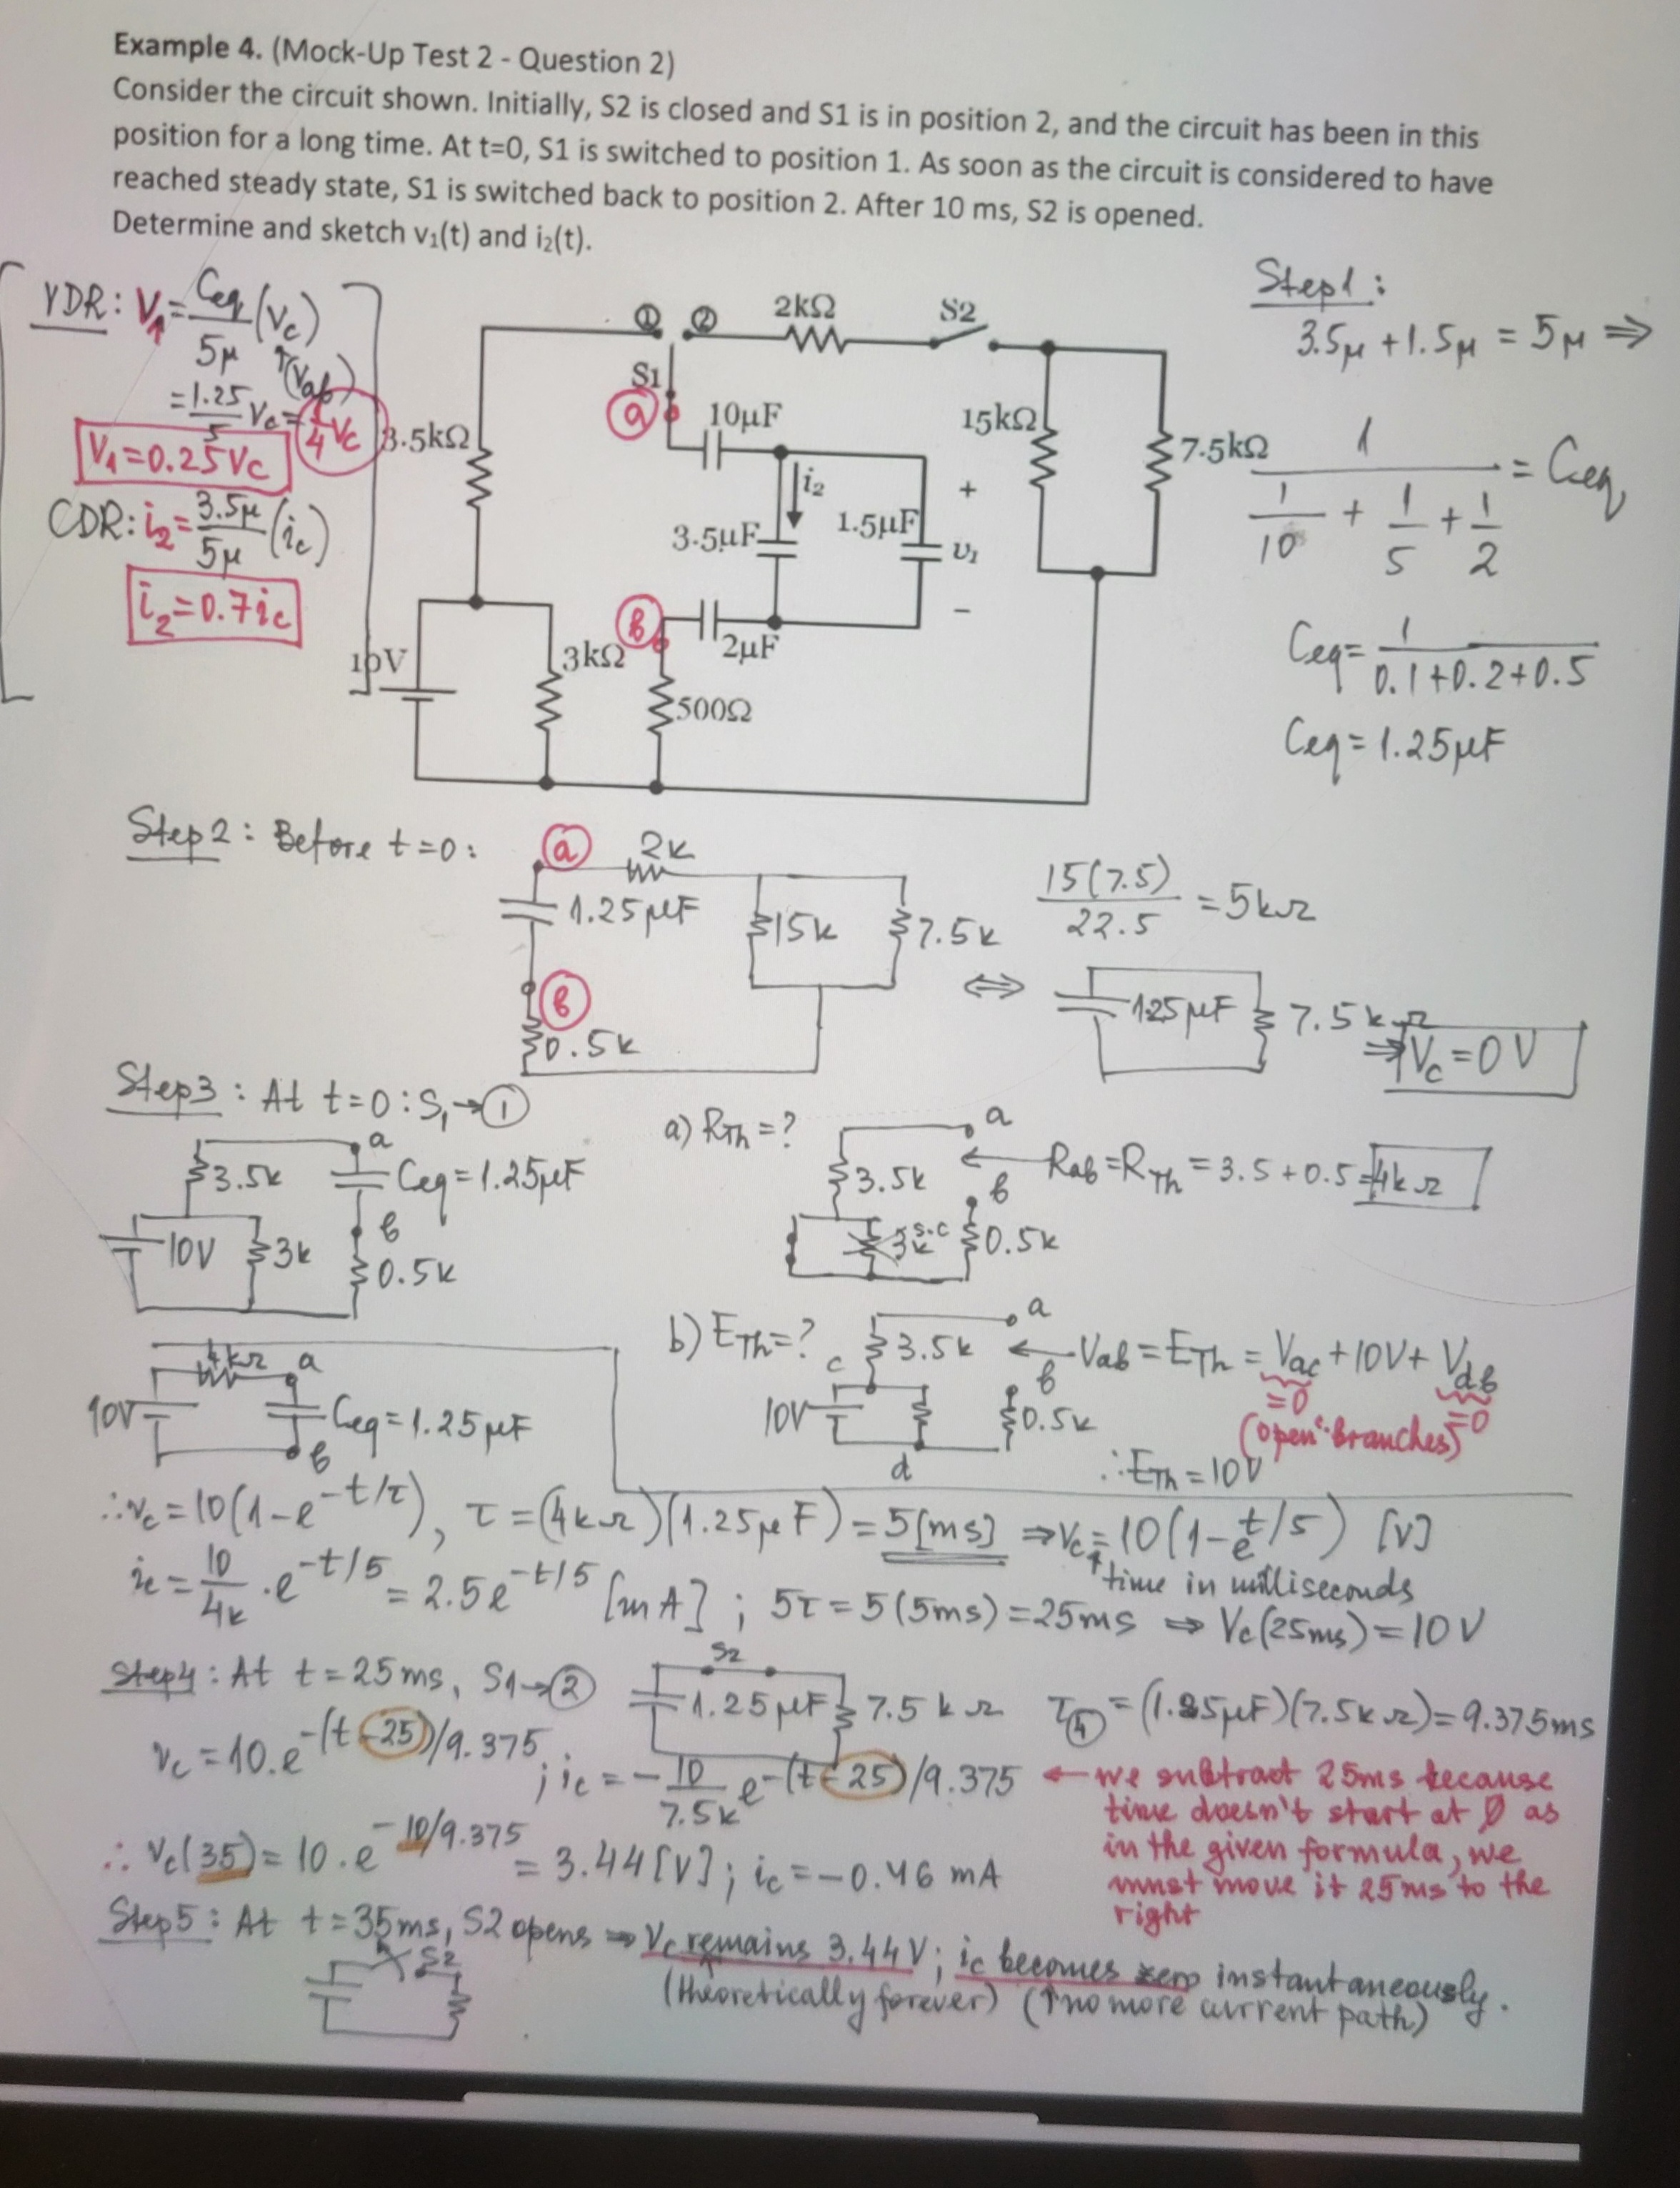 Example 4. (Mock-Up Test 2 - Question 2)
Consider the circuit shown. Initially, S2 is closed and S1 is in position 2, and the circuit has been in this
position for a long time. At t=0, S1 is switched to position 1. As soon as the circuit is considered to have
reached steady state, S1 is switched back to position 2. After 10 ms, S2 is opened.
Determine and sketch v₁(t) and i₂(t).
VDR: V₁ = Ceq/5μ (Vc)
↑(Vab)
= 1.25/5 Vc = 1/4 Vc
V₁=0.25Vc
CDR: i₂ = 3.5μ/5μ (ic)
i₂=0.7ic
① ② 2kΩ S2
S1
a 10μF
3.5kΩ
i₂
15kΩ
7.5kΩ
+
3.5μF 1.5μF
v₁
−
b
2μF
10V 3kΩ
500Ω
Step1:
3.5μ + 1.5μ = 5μ ⇒
1/(1/10 + 1/5 + 1/2) = Ceq
Ceq = 1/(0.1+0.2+0.5)
Ceq = 1.25μF
Step2: Before t=0:
a 2k
1.25μF 15k 7.5k
b
0.5k
15(7.5)/22.5 = 5kΩ
⇔ 1.25μF 7.5kΩ
⇒ Vc = 0V
Step3: At t=0: S₁→①
a
3.5k Ceq=1.25μF
b
10V 3k 0.5k
a) RTh=? a
3.5k ← Rab=RTh = 3.5+0.5 = 4kΩ
b
s.c
3k 0.5k
b) ETh=? a
c 3.5k ← Vab = ETh = Vac + 10V + Vdb
b =0 =0
10V 0.5k (open branches)
d ∴ETh = 10V
4kΩ a
10V Ceq=1.25μF
b
∴vc = 10(1-e^-t/τ), τ = (4kΩ)(1.25μF) = 5[ms] ⇒ Vc = 10(1-e^-t/5) [V]
↑time in milliseconds
ic = 10/4k · e^-t/5 = 2.5e^-t/5 [mA] ; 5τ = 5(5ms) = 25ms ⇒ Vc(25ms) = 10V
Step4: At t=25ms, S1→② S2
1.25μF 7.5kΩ τ④ = (1.25μF)(7.5kΩ) = 9.375ms
vc = 10.e^-(t-25)/9.375 ; ic = -10/7.5k e^-(t-25)/9.375 ← we subtract 25ms because
time doesn't start at 0 as
in the given formula, we
must move it 25ms to the
right
∴ Vc(35) = 10.e^-10/9.375 = 3.44[V]; ic = -0.46 mA
Step5: At t=35ms, S2 opens ⇒ Vc remains 3.44V; ic becomes zero instantaneously.
(theoretically forever) (↑no more current path)
S2